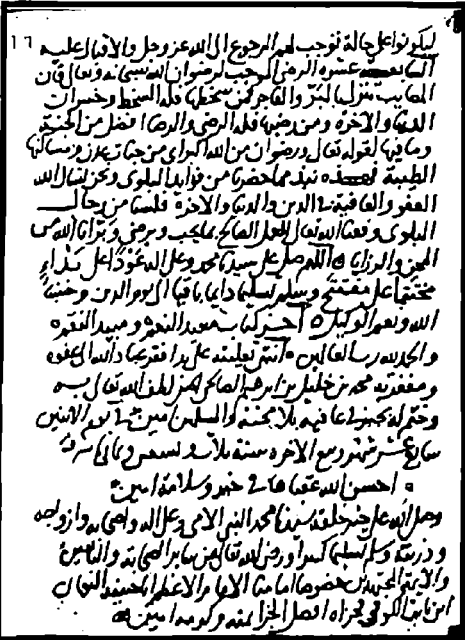 ١٦
ليكونوا على حالة توجب لهم الرجوع الى الله عز وجل والاقبال عليه
السابعة عشره الرضى الموجب لرضوان الله سبحانه وتعالى فان
المصايب تنزل بالبر والفاجر فمن سخطها فله السخط وخسران
الدنيا والاخرة ومن رضيها فله الرضى والرضا افضل من الجنة
وما فيها لقوله تعالى ورضوان من الله اكبر اى من جنات عدن ومساكنها
الطيبة فهذه نبذة مما حضرنا من فوايد البلوى ونحن نسال الله
العفو والعافية فى الدين والدنيا والاخرة فلسنا من رجال
البلوى وفقنا الله تعالى للعمل الصالح بما يحب ويرضى وبرانا الله من
المحن والرزايا اللهم صل على سيدنا محمد وعلى اله عودا على بداء
مختتما على مفتتح وسلم تسليما دايما باقيا الى يوم الدين وحسبنا
الله ونعم الوكيل اخر كتاب معيد النعم ومبيد النقم
والحمد لله رب العالمين انتهى تعليقه على يد افقر عباد الله الى عفوه
ومغفرته محمد بن خليل بن ابرهيم الصالحى الحنفى لطف الله تعالى به
وختم له بخير فى عافيه بلا محنة والمسلمين امين فى يوم الاثنين
سابع عشر شهر ربيع الاخره سنة ثلاث وتسعين وثمانى ماية
احسن الله عقباها فى خير وسلامة امين
وصلى الله على خير خلقه سيدنا محمد النبى الامى وعلى اله واصحابه وازواجه
وذريته وسلم تسليما كثيرا ورضى الله تعالى عن ساير الصحابة والتابعين
والايمة المجتهدين خصوصا امامنا الامام الاعظم ابا حنيفة النعمان
ابن ثابت الكوفى فجزاه افضل الجزا بمنه وكرمه امين